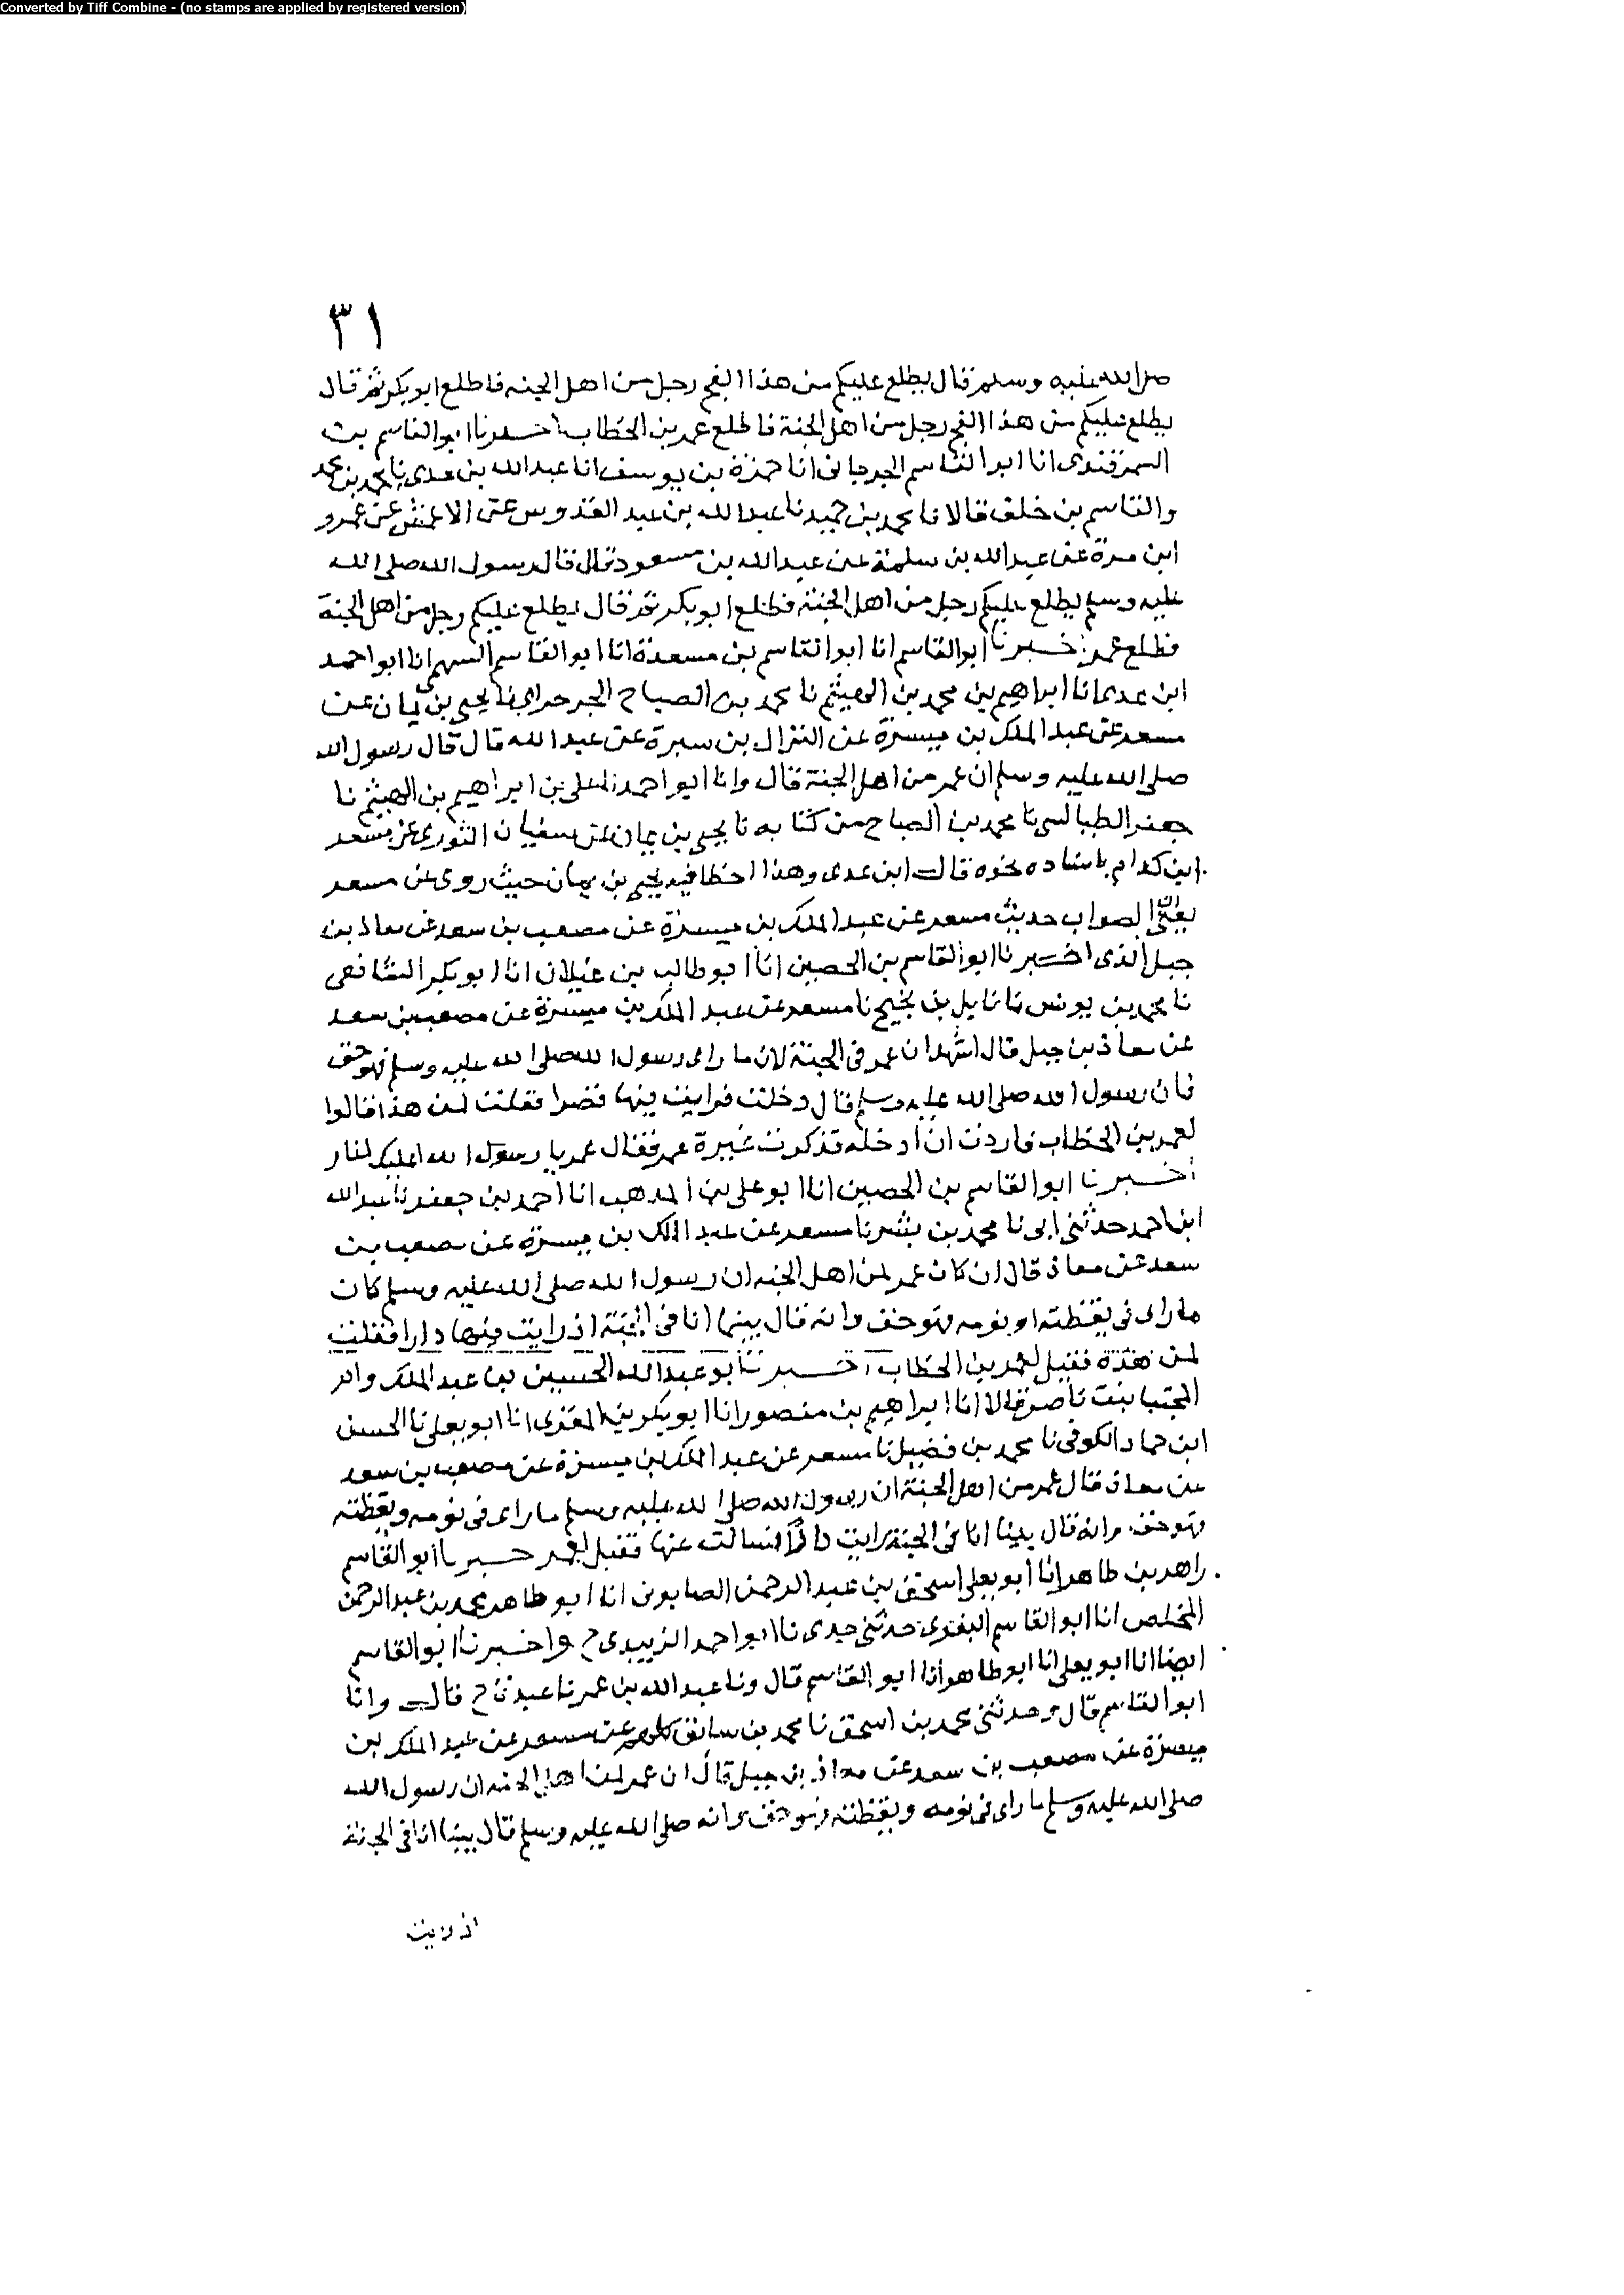 Converted by Tiff Combine - (no stamps are applied by registered version)
٣١
صلى الله عليه وسلم قال يطلع عليكم من هذا الفج رجل من اهل الجنه فاطلع ابو بكر ثم قال
يطلع عليكم من هذا الفج رجل من اهل الجنة فاطلع عمر بن الخطاب اخبرنا ابو القاسم بن
السمرقندى انا ابو القاسم الجرجانى انا حمزة بن يوسف انا عبد الله بن عدى نا محمد بن محمد
والقاسم بن خلف قالا نا محمد بن حميد نا عبد الله بن عبد القدوس عن الاعمش عن عمرو
ابن مرة عن عبد الله بن سلمة عن عبد الله بن مسعود قال قال رسول الله صلى الله
عليه وسلم يطلع عليكم رجل من اهل الجنة فطلع ابو بكر ثم قال يطلع عليكم رجل من اهل الجنة
فطلع عمر اخبرنا ابو القاسم انا ابو القاسم بن مسعدة انا ابو القاسم السهمى انا ابو احمد
ابن عدى انا ابراهيم بن محمد بن الهيثم نا محمد بن الصباح الجرجراى نا يحيى بن يمان عن
مسعر عن عبد الملك بن ميسرة عن النزال بن سبرة عن عبد الله قال قال رسول الله
صلى الله عليه وسلم ان عمر من اهل الجنة قال وانا ابو احمد نا على بن ابراهيم بن الهيثم نا
جعفر الطيالسى نا محمد بن الصباح من كتابه نا يحيى بن يمان عن سفيان الثورى عن مسعر
ابن كدام باسناده نحوه قال ابن عدى وهذا اخطا فيه يحيى بن يمان حيث روى عن مسعر
الصواب حديث مسعر عن عبد الملك بن ميسرة عن مصعب بن سعد عن معاذ بن
جبل الذى اخبرنا ابو القاسم بن الحصين انا ابو طالب بن غيلان انا ابو بكر الشافعى
نا محمد بن يونس نا نايل بن نجيح نا مسعر عن عبد الملك بن ميسرة عن مصعب بن سعد
عن معاذ بن جبل قال اشهد ان عمر فى الجنة لان ما راى رسول الله صلى الله عليه وسلم فهو حق
فان رسول الله صلى الله عليه وسلم قال دخلت فرايت فيها قصرا فقلت لمن هذا فقالوا
لعمر بن الخطاب فاردت ان ادخله فذكرت غيرة عمر فقال عمر يا رسول الله اعليك اغار
اخبرنا ابو القاسم بن الحصين انا ابو على بن المذهب انا احمد بن جعفر نا عبد الله
ابن احمد حدثنى ابى نا محمد بن بشر نا مسعر عن عبد الملك بن ميسرة عن مصعب بن
سعد عن معاذ قال ان كان عمر لمن اهل الجنه ان رسول الله صلى الله عليه وسلم كان
ما راى فى يقظته او نومه فهو حق وانه قال بينما انا فى الجنة اذ رايت فيها دارا فقلت
لمن هذة فقيل لعمر بن الخطاب اخبرنا ابو عبد الله الحسين بن عبد الملك وام
المجتبا بنت ناصر قالا انا ابراهيم بن منصور انا ابو بكر بن المقرى انا ابو يعلى نا الحسن
ابن حماد الكوفى نا محمد بن فضيل نا مسعر عن عبد الملك بن ميسرة عن مصعب بن سعد
عن معاذ قال عمر من اهل الجنة ان رسول الله صلى الله عليه وسلم ما راى فى نومه ويقظته
فهو حق وانه قال بينا انا فى الجنة رايت دارا فسالت عنها فقيل لعمر اخبرنا ابو القاسم
زاهر بن طاهر انا ابو يعلى اسحق بن عبد الرحمن الصابونى انا ابو طاهر محمد بن عبد الرحمن
المخلص انا ابو القاسم البغوى حدثنى جدى نا ابو احمد الزبيدى ح واخبرنا ابو القاسم
ايضا انا ابو يعلى انا ابو طاهر انا ابو القاسم قال ونا عبد الله بن عمر نا عبدة ح قال وانا
ابو القاسم قال وحدثنى محمد بن اسحق نا محمد بن سابق كلهم عن مسعر عن عبد الملك بن
ميسرة عن مصعب بن سعد عن معاذ بن جبل قال ان عمر لمن اهل الجنه ان رسول الله
صلى الله عليه وسلم ما راى فى نومه ويقظته فهو حق وانه صلى الله عليه وسلم قال بينا انا فى الجنة
اذ رايت